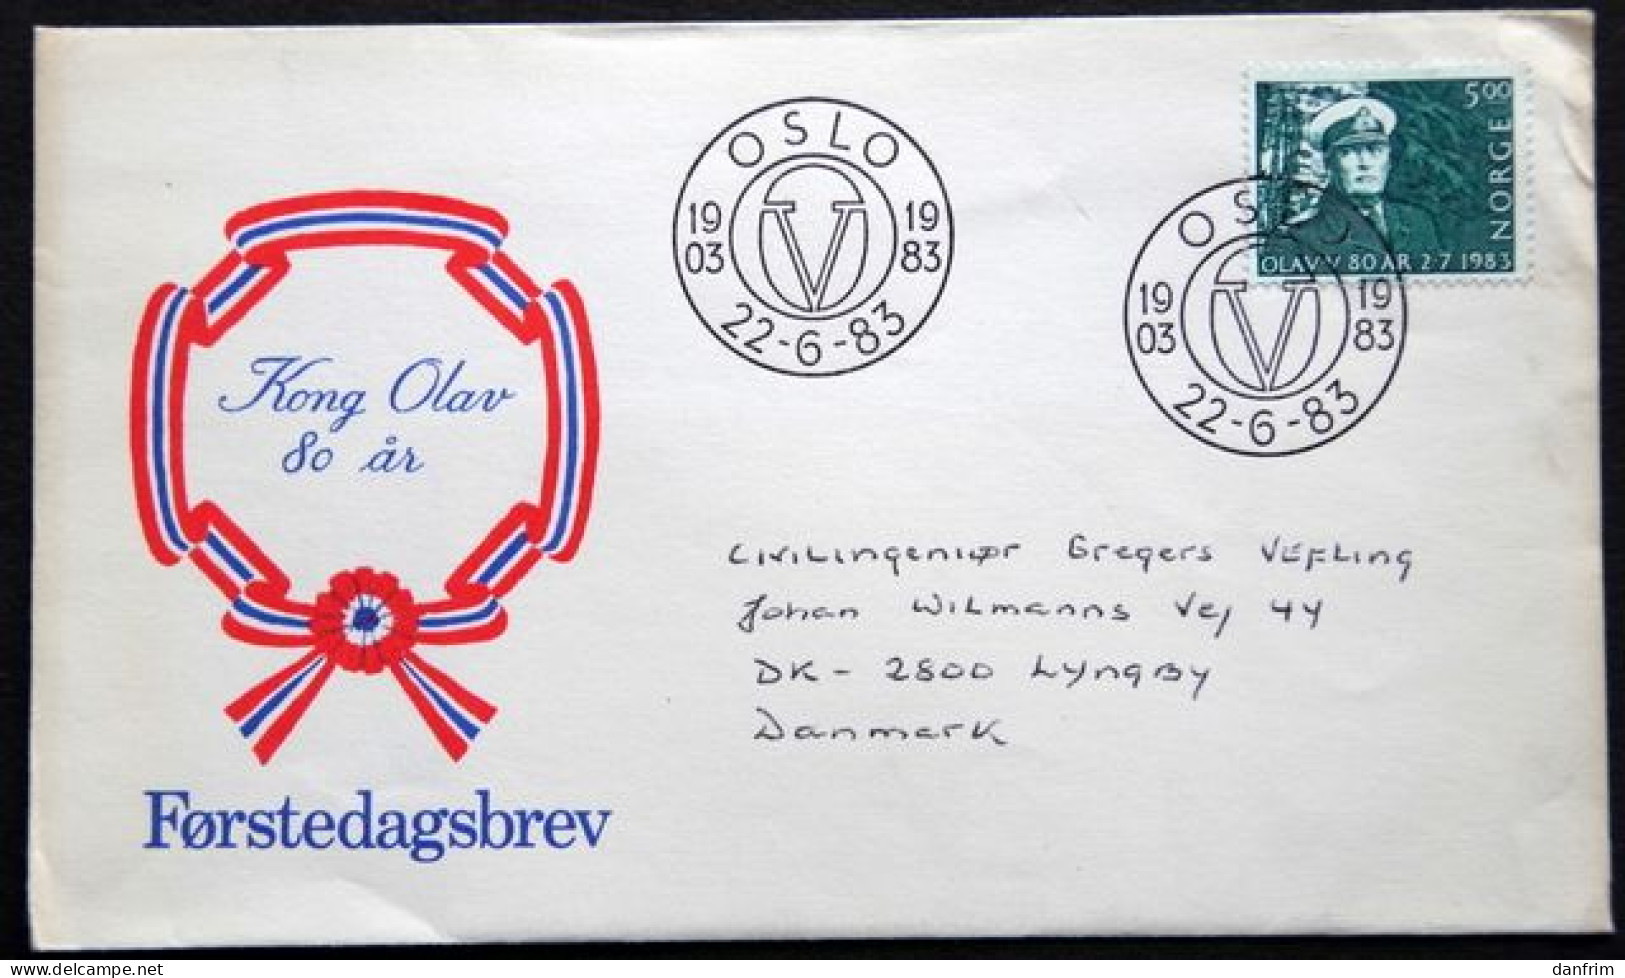 OSLO
19 03
19 83
22-6-83
5.00
NORGE
OLAV V 80 ÅR 2-7 1983
OSLO
19 03
19 83
22-6-83
Kong Olav
80 år
Førstedagsbrev
Civilingeniør Gregers Vefling
Johan Wilmanns Vej 44
DK - 2800 Lyngby
Danmark
danfrim